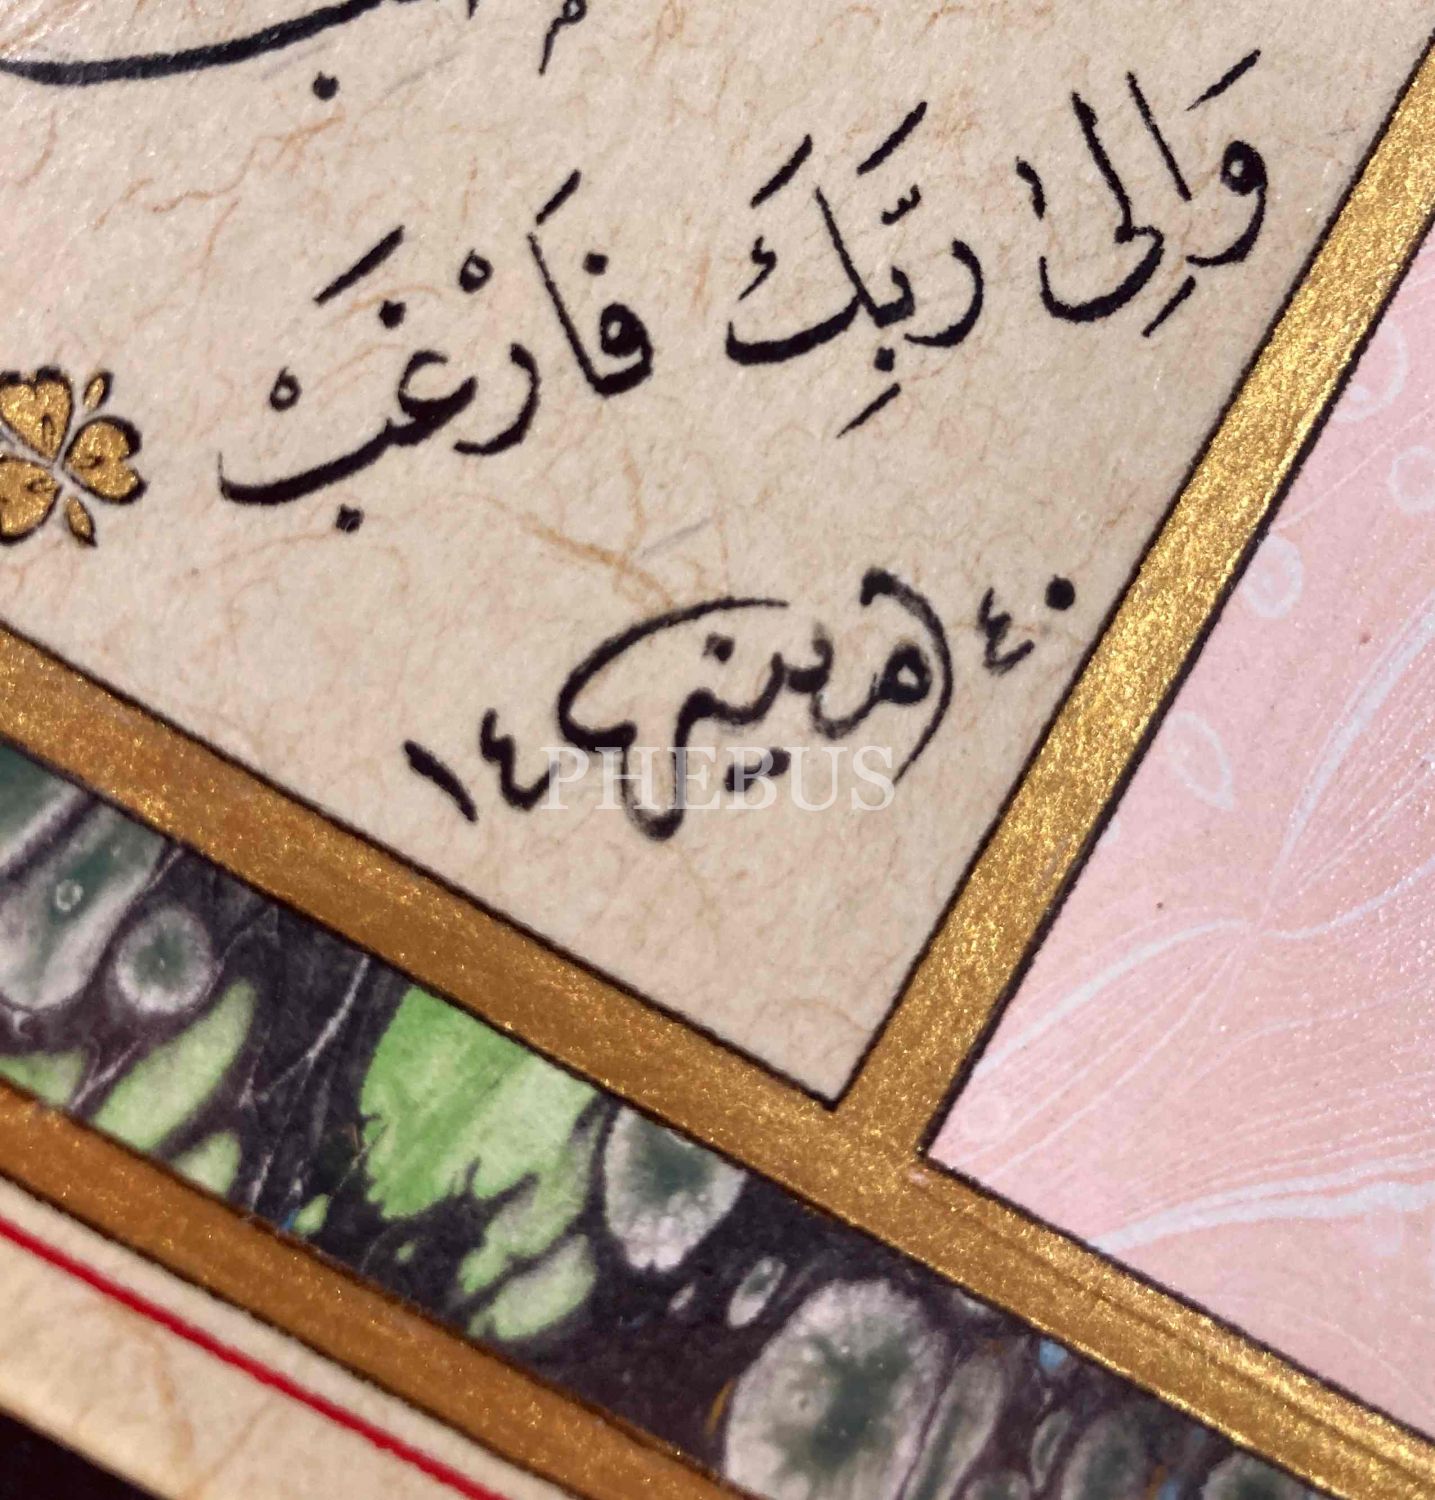 وَاِلٰى رَبِّكَ فَارْغَبْ
١٤ ٤٠
PHEBUS